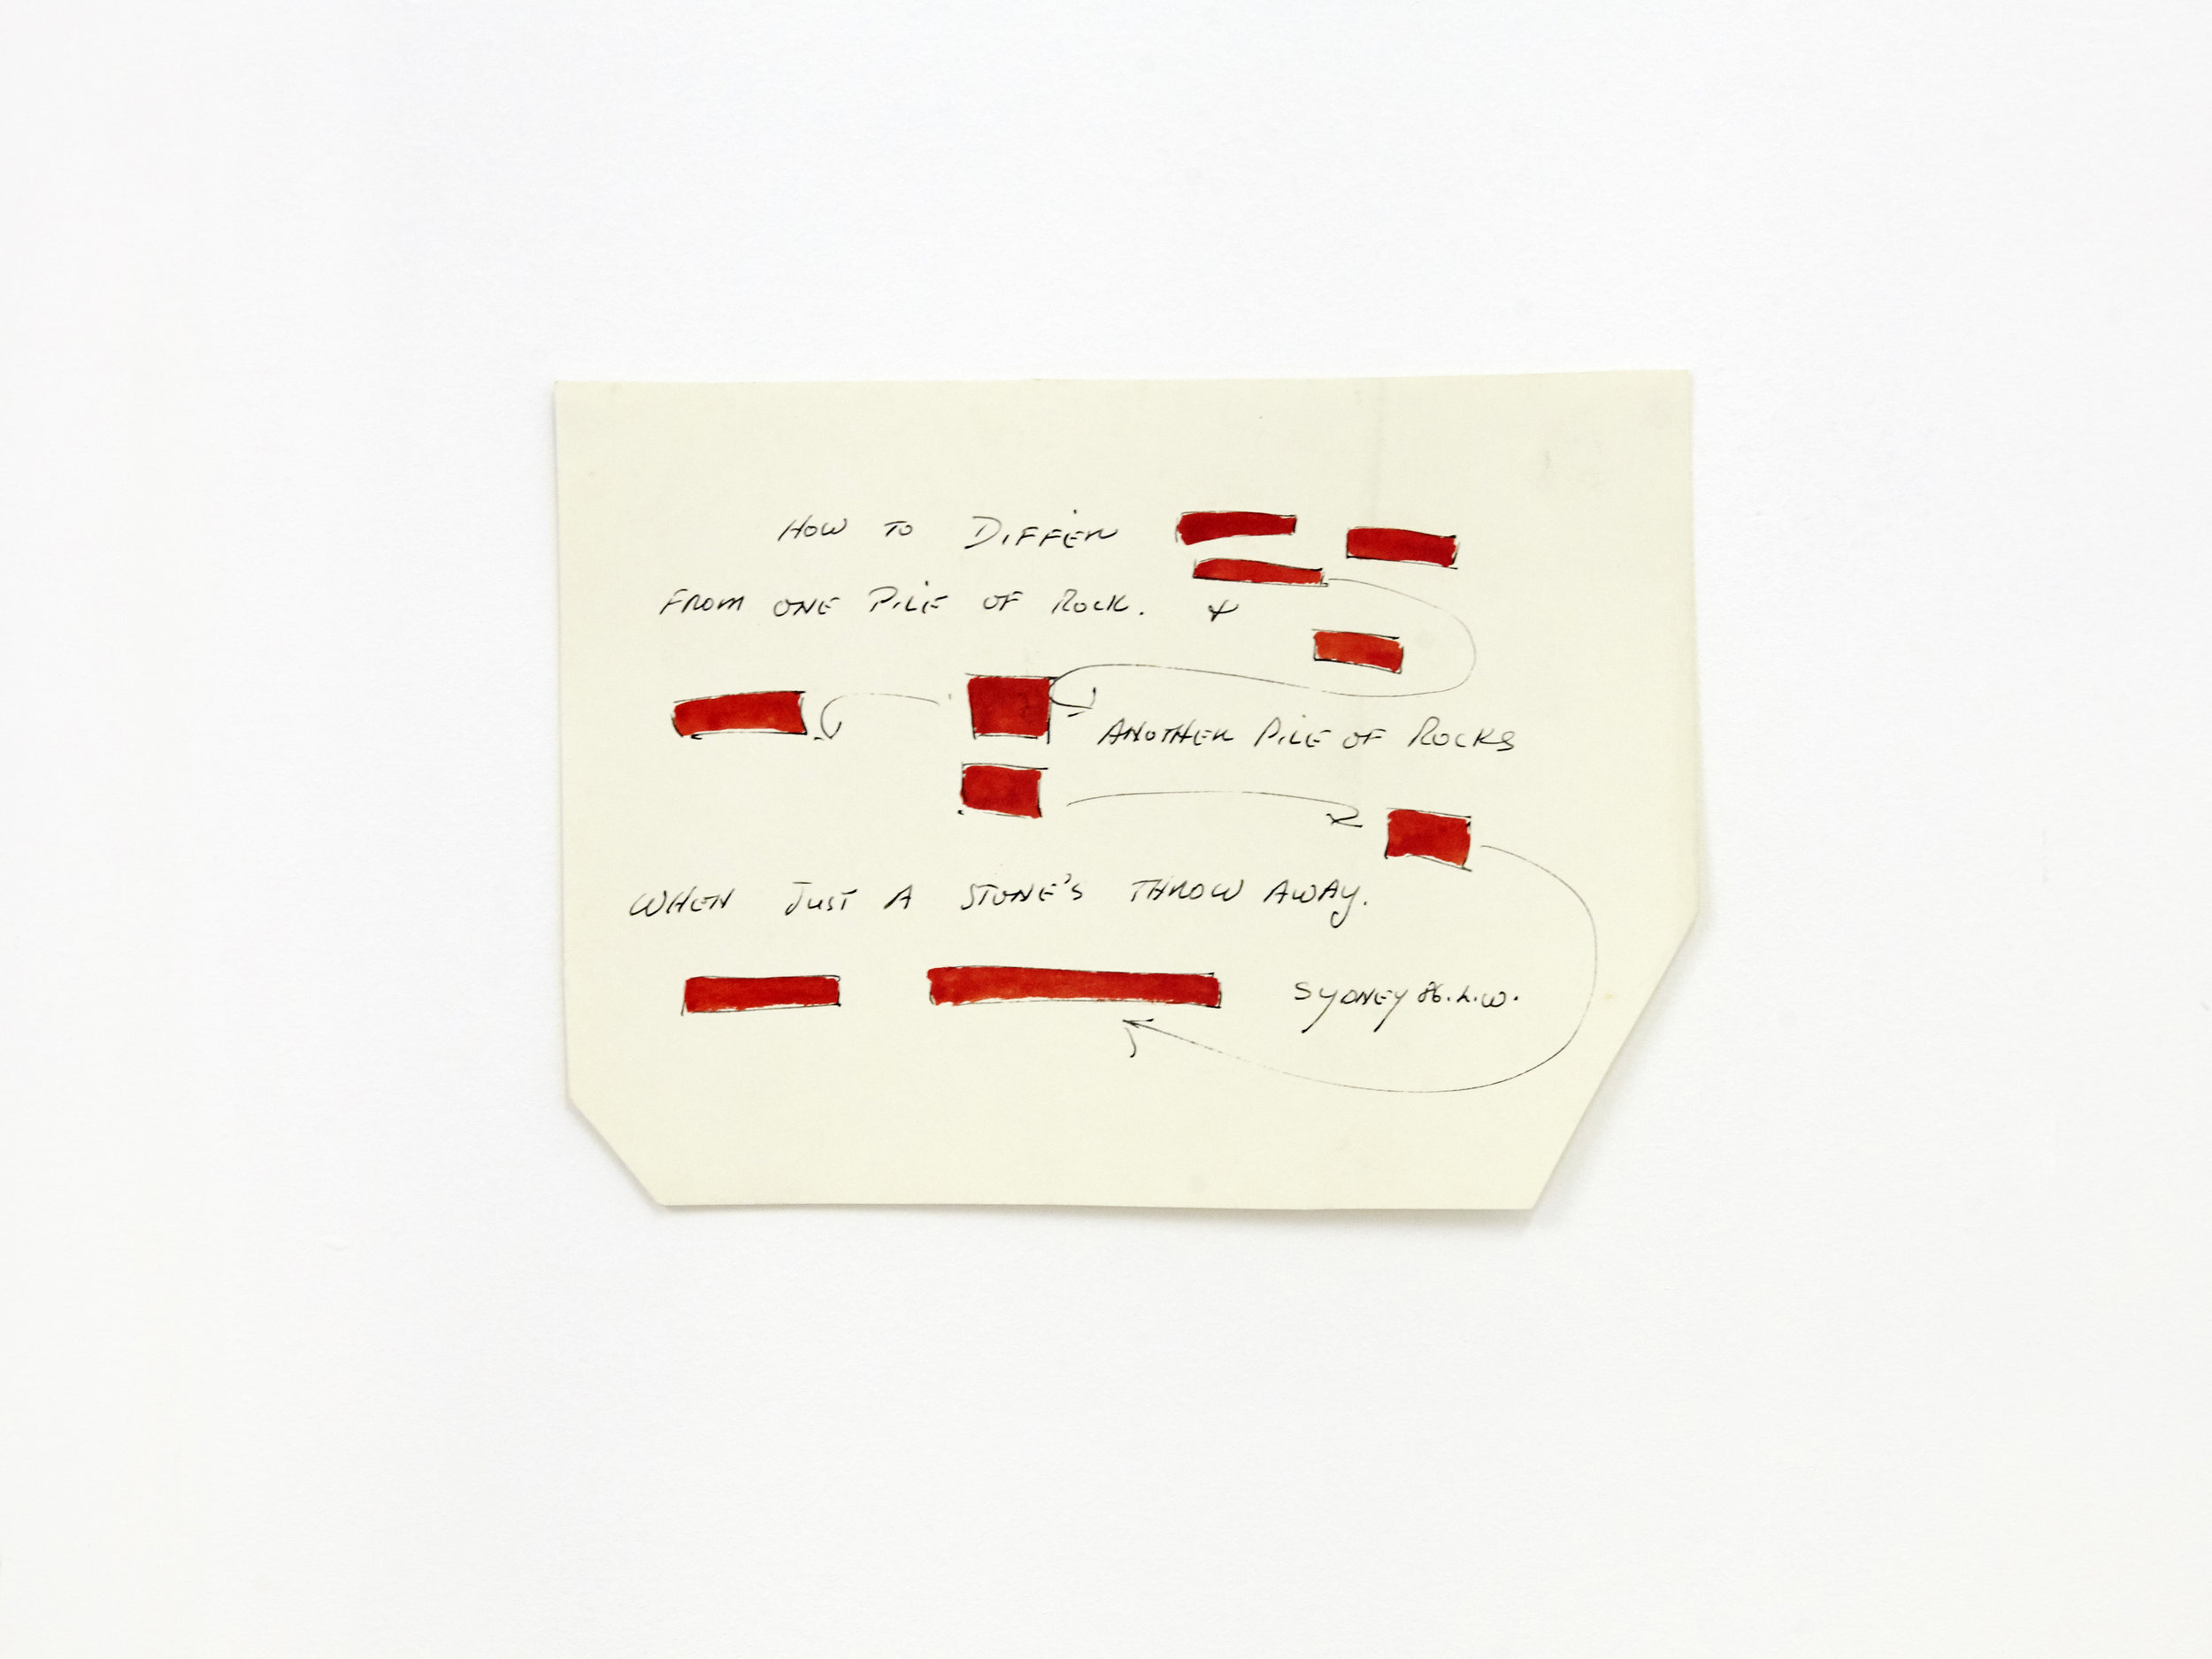 HOW TO DIFFER
FROM ONE PILE OF ROCK. +
ANOTHER PILE OF ROCKS
WHEN JUST A STONE'S THROW AWAY.
SYDNEY 86. L.W.